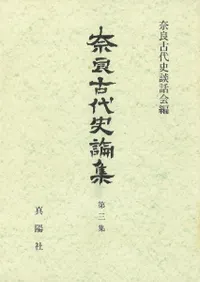 奈良古代史談話会編
奈良古代史論集
第三集
真陽社